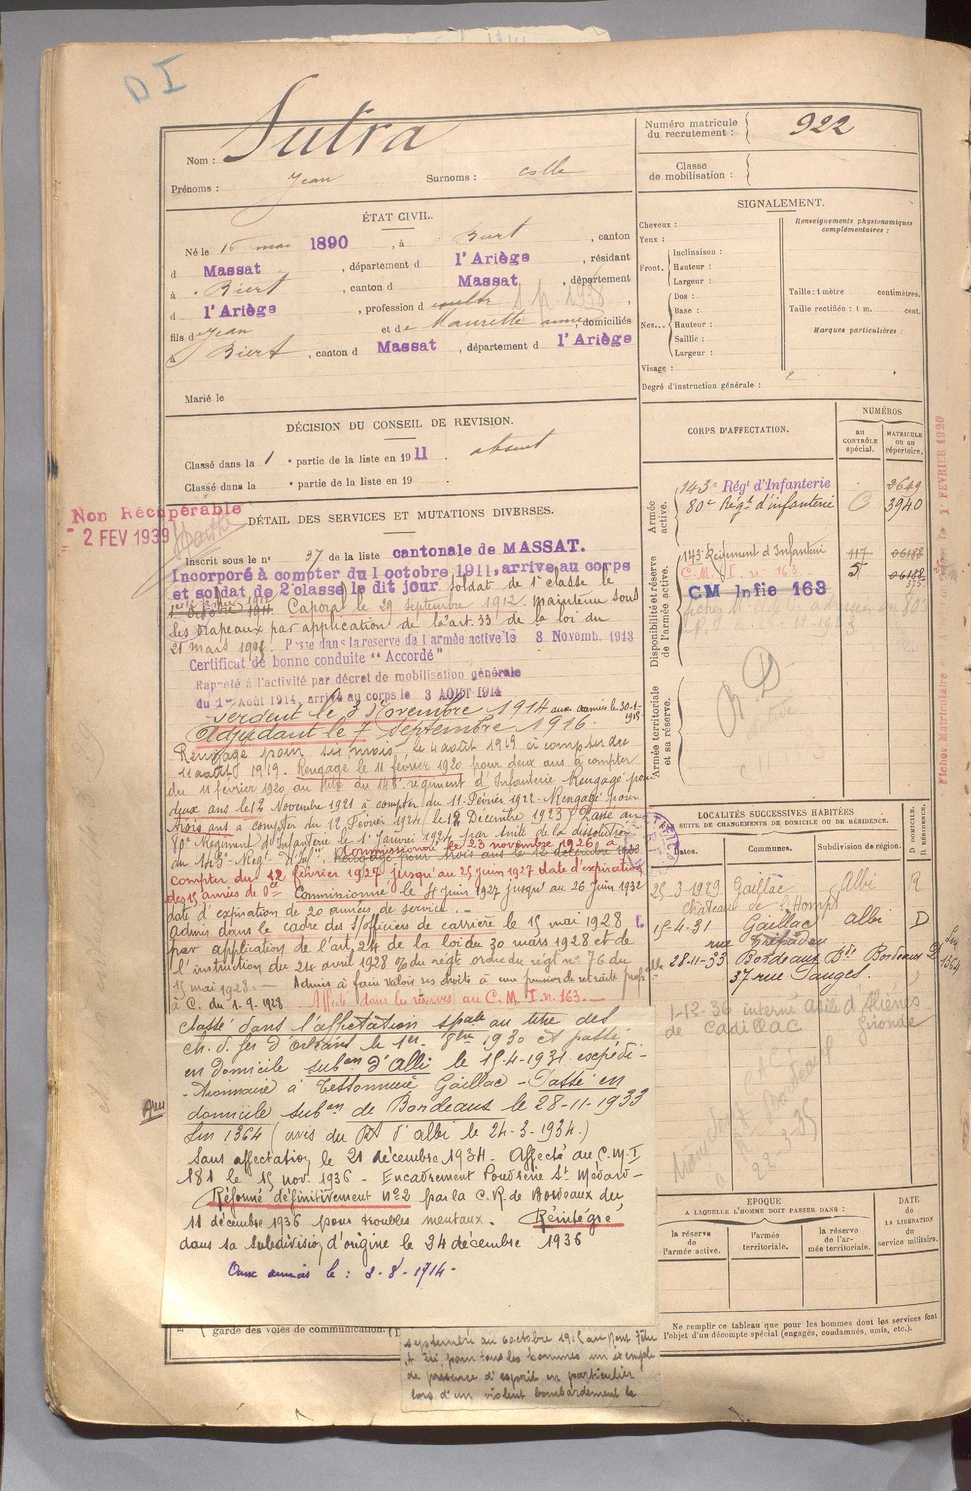 DI
Nom : Sutra
Prénoms : Jean Surnoms :
Numéro matricule du recrutement : 922
Classe de mobilisation :
ÉTAT CIVIL.
Né le 16 mai 1890, à Biert, canton
d Massat, département d l'Ariège, résidant
à Biert, canton d Massat, département
d l'Ariège, profession de
fils d Jean et de Maurette, domiciliés
à Biert, canton d Massat, département d l'Ariège
Marié le
SIGNALEMENT.
Cheveux :
Yeux :
Front. Inclinaison :
Hauteur :
Largeur :
Nez... Dos :
Base :
Hauteur :
Saillie :
Largeur :
Visage :
Degré d'instruction générale : 2
Renseignements physionomiques complémentaires :
Taille : 1 mètre centimètres.
Taille rectifiée : 1 m. cent.
Marques particulières :
DÉCISION DU CONSEIL DE REVISION.
Classé dans la 1e partie de la liste en 1911. absent
Classé dans la e partie de la liste en 19
Non Récupérable
2 FEV 1939
DÉTAIL DES SERVICES ET MUTATIONS DIVERSES.
Inscrit sous le n° 37 de la liste cantonale de MASSAT.
Incorporé à compter du 1 octobre 1911, arrivé au corps
et soldat de 2e classe le dit jour soldat de 1e classe le
Caporal le 29 septembre 1912. Maintenu sous
les drapeaux par application de l'art. 33 de la loi du
21 mars 1905. Passé dans la réserve de l'armée active le 8 Novemb. 1913
Certificat de bonne conduite "Accordé"
Rappelé à l'activité par décret de mobilisation générale
du 1er Août 1914, arrivé au corps le 3 AOUT 1914
Sergent le 3 Novembre 1914 aux armées le 30-1-1915
Adjudant le 7 Septembre 1916.
Rengagé pour six mois, le 4 août 1919 à compter du
11 août 1919. Rengagé le 11 février 1920 pour deux ans à compter
du 11 février 1920 au titre du 143e régiment d'Infanterie. Rengagé pour
deux ans le 12 Novembre 1921 à compter du 11 Février 1922. Rengagé pour
trois ans à compter du 12 Février 1924 (le 12 Décembre 1923) Passé au
80e Régiment d'Infanterie le 1er Janvier 1924 par suite de la dissolution
du 143e Régt d'Infie. Rengagé pour trois ans le 12 décembre
Commissionné le 23 novembre 1926 à
compter du 12 février 1927 jusqu'au 25 juin 1927 date d'expiration
des 15 années de sce Commissionné le juin 1927 jusqu'au 26 juin 1932
date d'expiration de 20 années de service.
Admis dans le cadre des S/officiers de carrière le 15 mai 1928
par application de l'art. 24 de la loi du 30 mars 1928 et de
l'instruction du 24 avril 1928 du régt ordre du régt n° 76 du
15 mai 1928. Admis à faire valoir ses droits à une pension de retraite
à C. du 1-9-1928 Affecté dans les réserves au C.M.I. n. 163.
Classé dans l'affectation spale au titre des
ch. d. fer d'Orléans le 1er 1930 et passé
en domicile subon d'Albi le 15-4-1931 expédi-
-tionnaire à Tessonnières Gaillac - Passé en
domicile subon de Bordeaux le 28-11-1933
Lm 1364 (avis du d'Albi le 24-3-1934.)
Sans affectation le 21 décembre 1934. Affecté au C.M.I
181 le 15 nov. 1936 - Encadrement Poudrerie St Médard-
Réformé définitivement n°2 par la C.R. de Bordeaux du
11 décembre 1936 pour troubles mentaux. Réintégré
dans sa subdivision d'origine le 24 décembre 1936
Aux armées le : 8-8-1914-
garde des voies de communication.
septembre au 6 octobre 1915 au Mont Têtu
A été pour tous les hommes un exemple
de présence d'esprit en particulier
lors d'un violent bombardement le
CORPS D'AFFECTATION.
NUMÉROS
AU CONTRÔLE spécial.
MATRICULE OU AU répertoire.
Armée active.
143e Régt d'Infanterie 2649
80e Régt d'infanterie 3940
Disponibilité et réserve de l'armée active.
143e Régiment d'Infanterie 117
C.M.I. n. 163. 5
CM Infie 163
Armée territoriale et sa réserve.
LOCALITÉS SUCCESSIVES HABITÉES
PAR SUITE DE CHANGEMENTS DE DOMICILE OU DE RÉSIDENCE.
Dates. Communes. Subdivision de région. D DOMICILE. R RÉSIDENCE.
25-3-1929 Gaillac Albi R
Château de
15-4-31 Gaillac Albi D
rue
28-11-33 Bordeaux Bordeaux D Lm 1364
37 rue
1-12-36 interné asile d'Aliénés
de Cadillac Gironde
22-3-35
EPOQUE
A LAQUELLE L'HOMME DOIT PASSER DANS :
la réserve de l'armée active.
l'armée territoriale.
la réserve de l'armée territoriale.
DATE de LA LIBÉRATION du service militaire.
Ne remplir ce tableau que pour les hommes dont les services font
l'objet d'un décompte spécial (engagés, condamnés, omis, etc.).